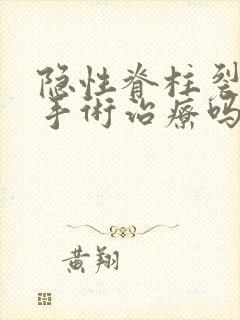 隐性脊柱裂
手術治療吗
黄翔